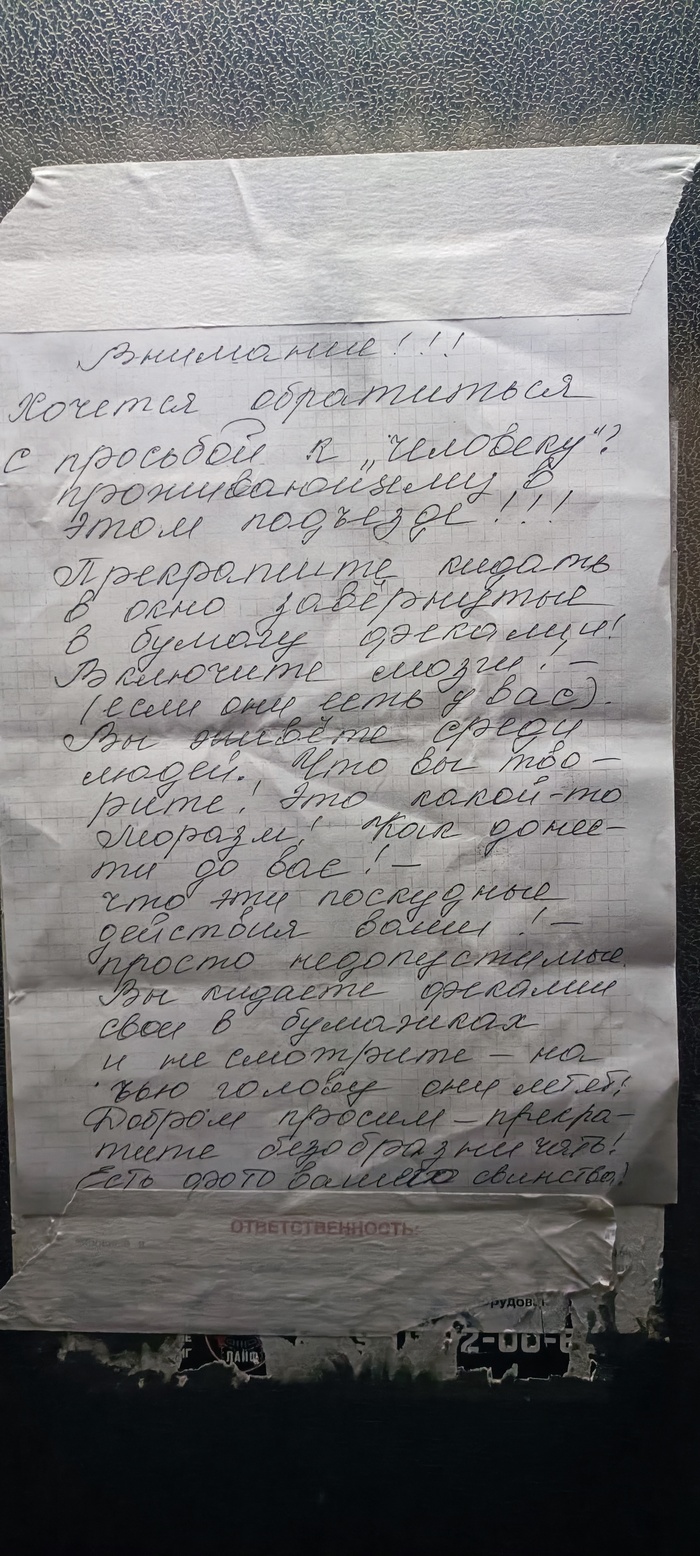 Внимание!!!
Хочется обратиться
с просьбой к „человеку"?
проживающему в
этом подъезде!!!
Прекратите кидать
в окно завёрнутые
в бумагу фекалии!
Включите мозги! –
(если они есть у вас).
Вы живёте среди
людей. Что вы тво–
рите! Это какой-то
моразм! Как донес–
ти до вас! –
что эти поскудные
действия ваши! –
просто недопустимые.
Вы кидаете фекалии
свои в бумажках
и не смотрите – на
чью голову они летят!
Добром просим – прекра–
тите безобразничать!
Есть фото вашего свинства!
ОТВЕТСТВЕННОСТЬ:
ЛАЙФ